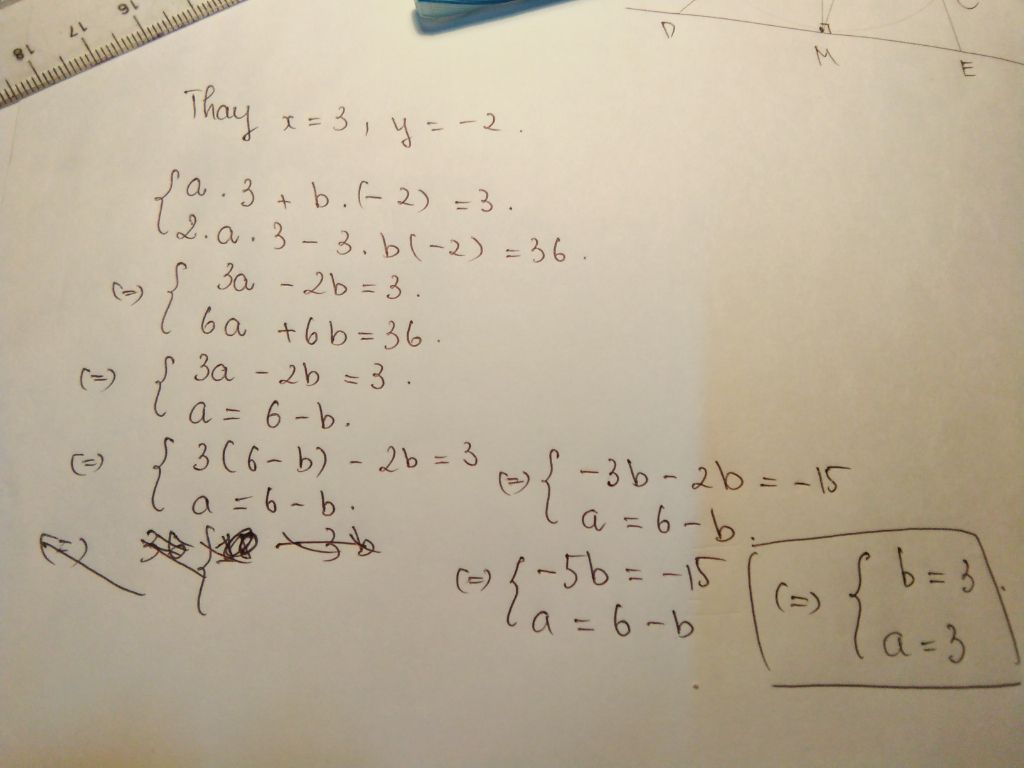 18 17 16
D M E
Thay x = 3, y = -2.
{ a . 3 + b . (-2) = 3.
2. a . 3 - 3. b(-2) = 36.
(=) { 3a - 2b = 3.
6a + 6b = 36.
(=) { 3a - 2b = 3.
a = 6 - b.
(=) { 3(6 - b) - 2b = 3
a = 6 - b.
(=) { -3b - 2b = -15
a = 6 - b.
(=) { -5b = -15
a = 6 - b
(=) { b = 3
a = 3